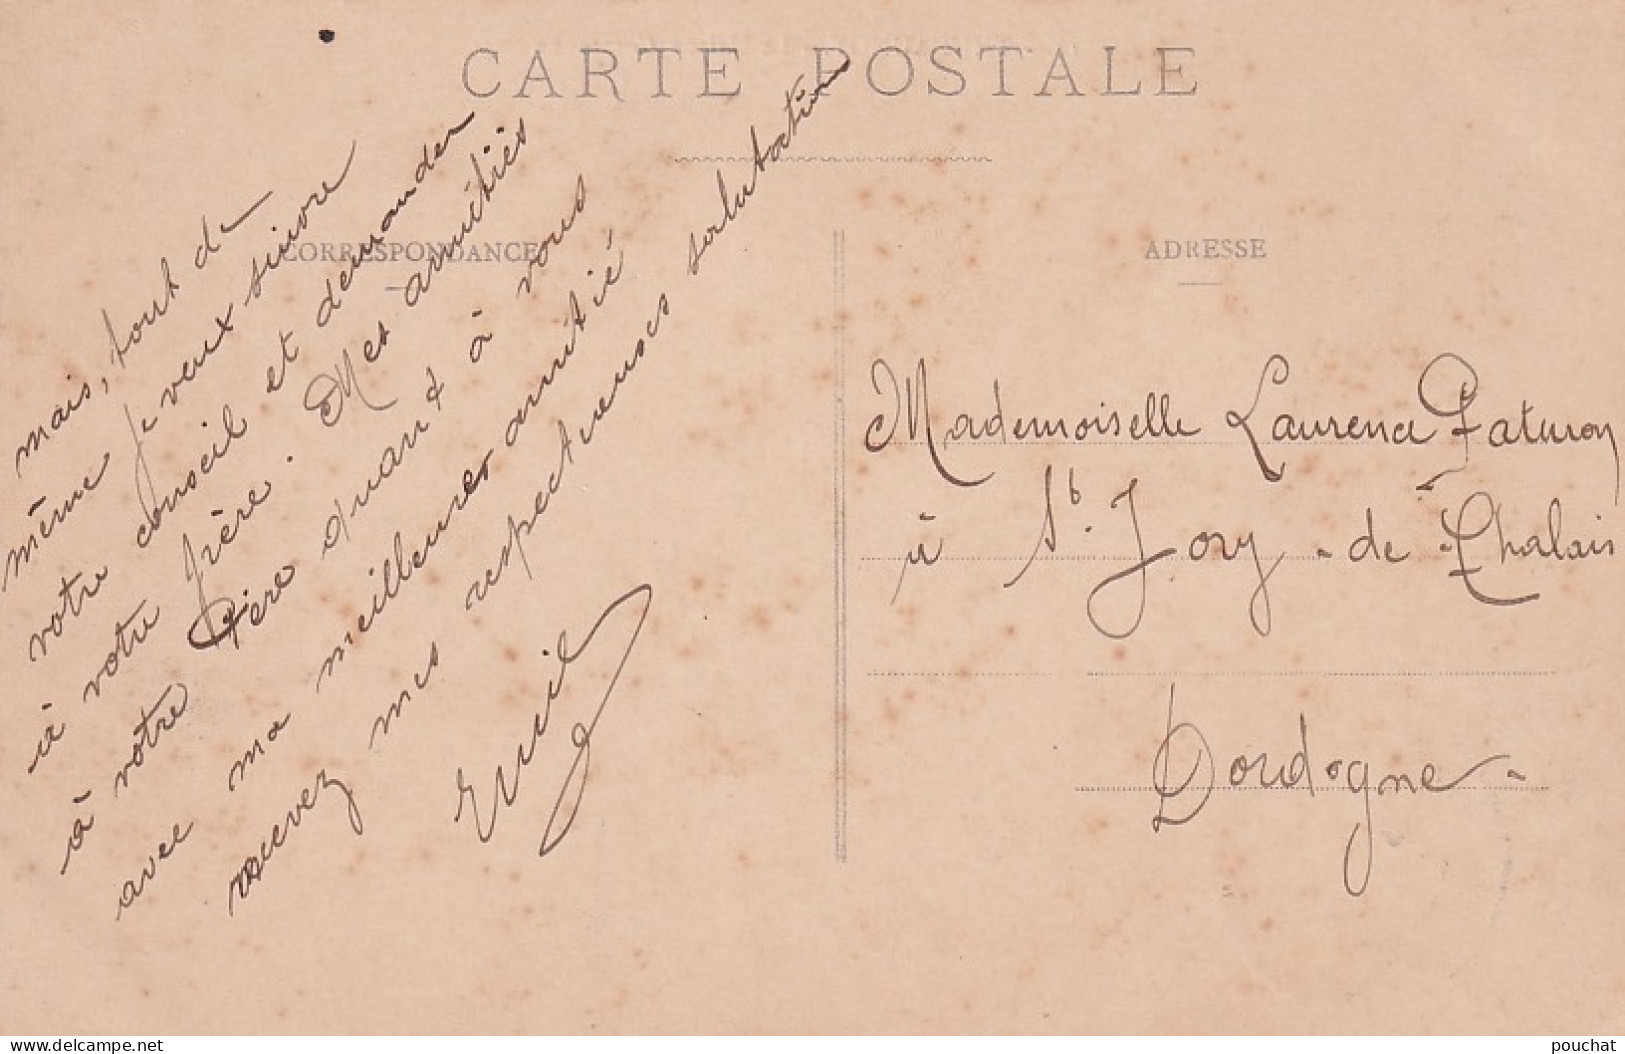 CARTE POSTALE
CORRESPONDANCE
mais, tout de
même je veux suivre
votre conseil et demander
à votre frère. Mes amitiés
à votre Père quant à vous
avec ma meilleures amitié,
recevez mes respectueuses salutations
Emil
ADRESSE
Mademoiselle Laurence Faturon
à St. Jory - de - Chalais
Dordogne -
delcampe.net
pouchat